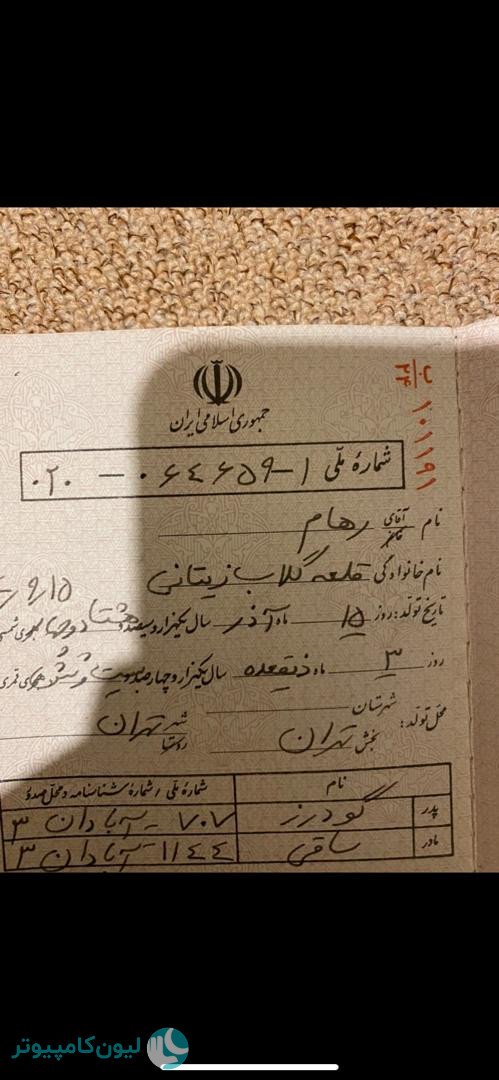 جمهوری اسلامی ایران
ب
۲۴
۱۰۱۱۹۱
شمارهٔ ملّی ۱-۰۶۴۶۵۹-۰۲۰
نام آقای رهام
نام خانوادگی قلعه گلاب زیتانی
تاریخ تولد: روز ۱۵ ماه آذر سال یکهزار و سیصد و هشتاد و چهار هجری شمسی
روز ۳ ماه ذیقعده سال یکهزار و چهارصد و بیست و شش هجری قمری
محل تولد: شهرستان
بخش تهران شهر تهران
روستا
نام شمارهٔ ملی / شمارهٔ شناسنامه و محل صدور
پدر گودرز ۷۰۷ - آبادان ۳
مادر ساقی ۱۱۴۴ - آبادان ۳
لیون کامپیوتر